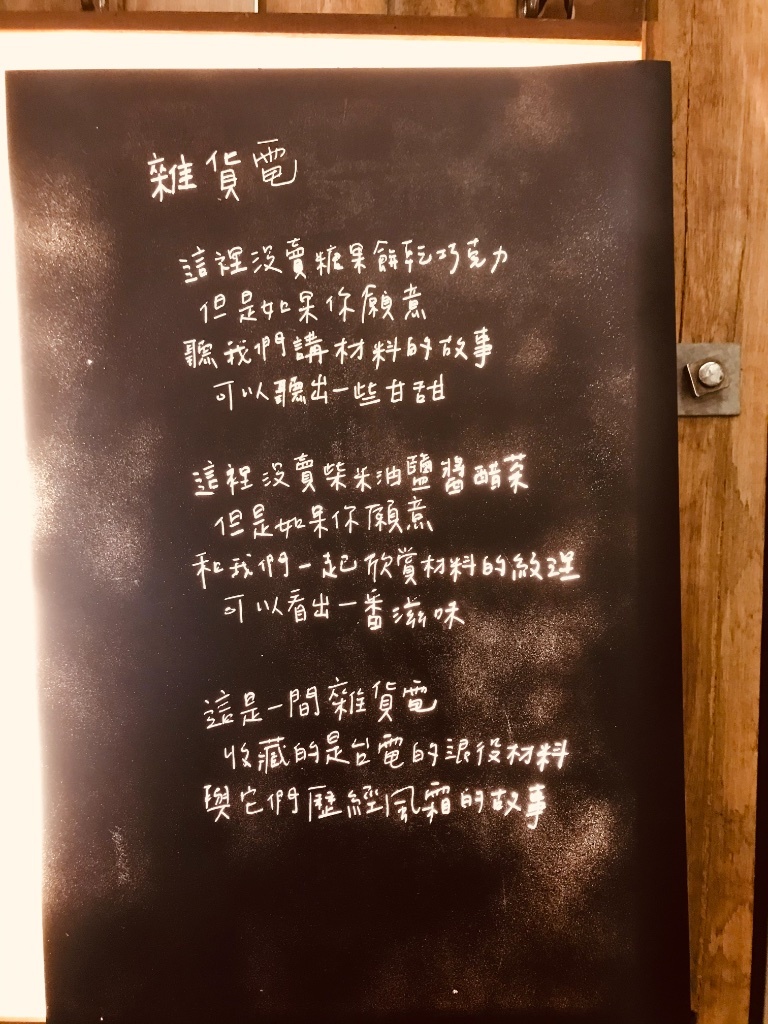 雜貨電
這裡沒賣糖果餅乾巧克力
但是如果你願意
聽我們講材料的故事
可以聽出一些甘甜
這裡沒賣柴米油鹽醬醋茶
但是如果你願意
和我們一起欣賞材料的紋理
可以看出一番滋味
這是一間雜貨電
收藏的是台電的退役材料
與它們歷經風霜的故事